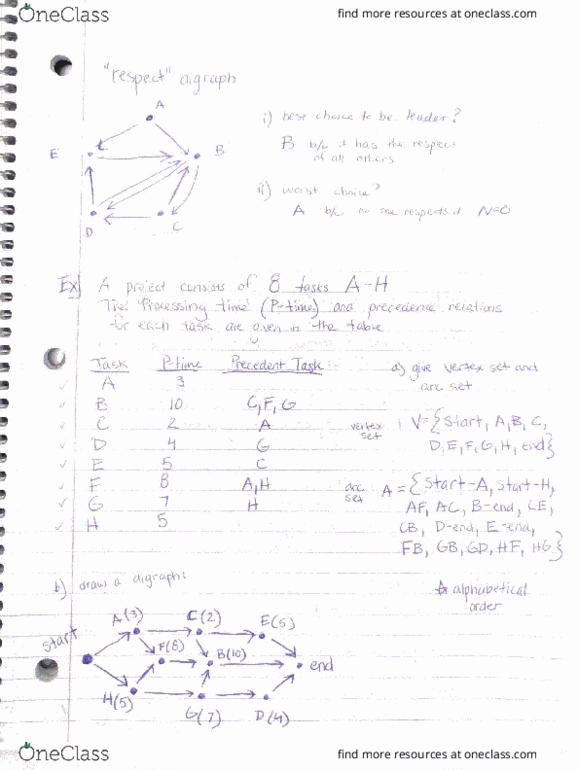 OneClass
find more resources at oneclass.com
"respect" digraph
A
E
B
D
C
i) best choice to be leader?
B b/c it has the respect
of all others
ii) worst choice?
A b/c no one respects it N=0
Ex) A project consists of 8 tasks A-H
The Processing time (P-time) and precedence relations
for each task are given in the table
Task P-time Precedent Task
A 3
B 10 C, F, G
C 2 A
D 4 G
E 5 C
F 8 A, H
G 7 H
H 5
a) give vertex set and
arc set
vertex set V={Start, A, B, C,
D, E, F, G, H, end}
arc set A={Start-A, Start-H,
AF, AC, B-end, CE,
CB, D-end, E-end,
FB, GB, GD, HF, HG}
☆ alphabetical
order
b) draw a digraph:
start
A(3)
C(2)
E(5)
F(8)
B(10)
end
H(5)
G(7)
D(4)
OneClass
find more resources at oneclass.com